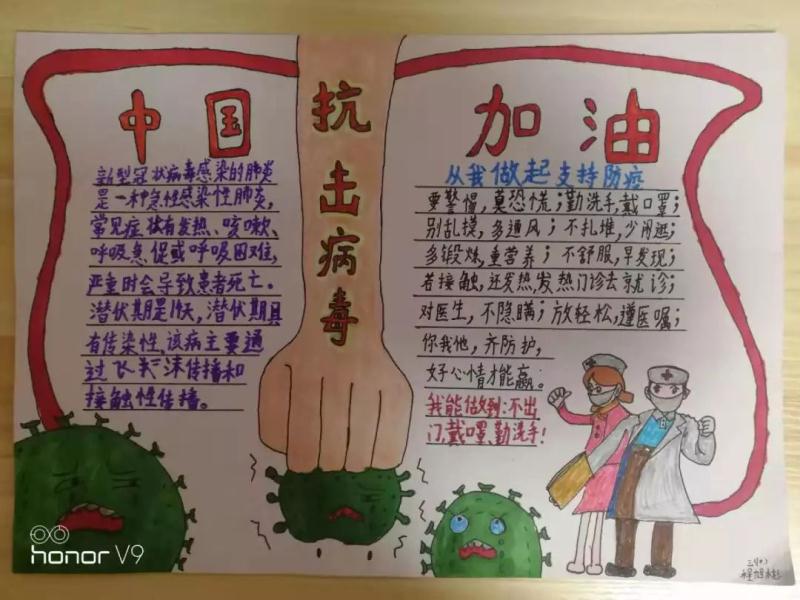 中国
抗击病毒
加油
新型冠状病毒感染的肺炎
是一种急性感染性肺炎,
常见症状有发热、咳嗽、
呼吸急促或呼吸困难,
严重时会导致患者死亡。
潜伏期是14天,潜伏期具
有传染性,该病主要通
过飞沫传播和
接触性传播。
从我做起支持防疫
要警惕,莫恐慌;勤洗手,戴口罩;
别乱摸,多通风;不扎堆,少闲逛;
多锻炼,重营养;不舒服,早发现;
若接触,还发热,发热门诊去就诊;
对医生,不隐瞒;放轻松,遵医嘱;
你我他,齐防护,
好心情才能赢。
我能做到:不出
门,戴口罩,勤洗手!
honor V9